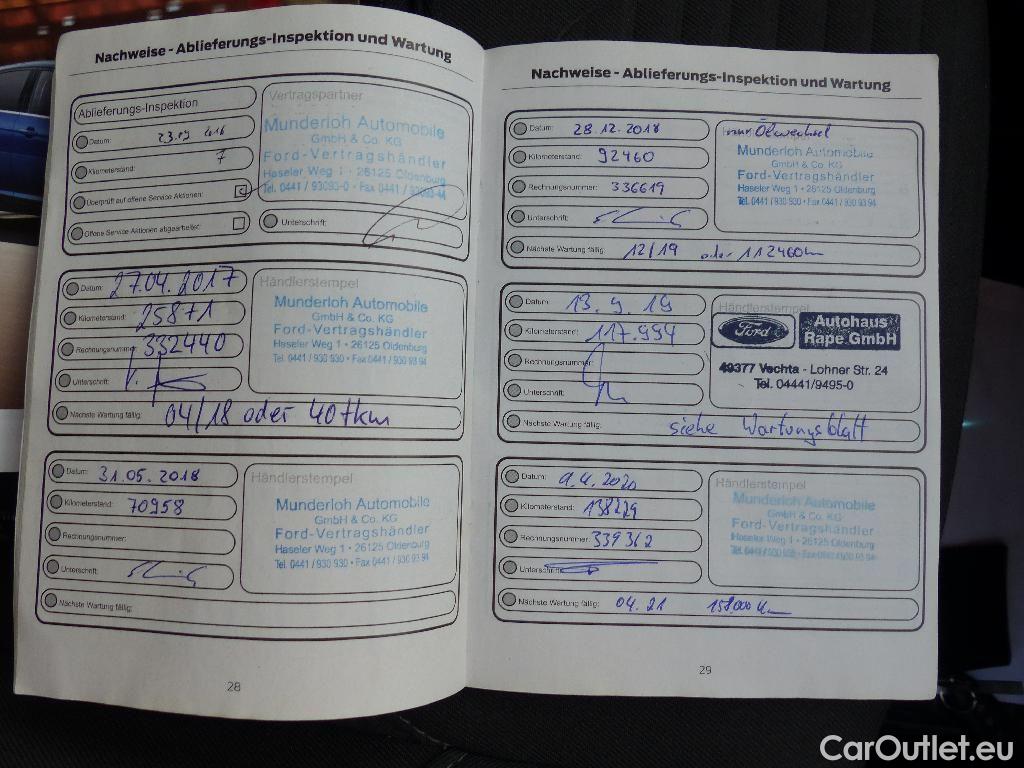 Nachweise - Ablieferungs-Inspektion und Wartung
Ablieferungs-Inspektion
Datum:
Kilometerstand: 7
Überprüft auf offene Service Aktionen:
Offene Service Aktionen abgearbeitet:
Vertragspartner
Munderloh Automobile
GmbH & Co. KG
Ford-Vertragshändler
Haseler Weg 1 · 26125 Oldenburg
Tel. 0441 / 93093-0 · Fax 0441 / 93093-44
Unterschrift:
Datum: 27.04.2017
Kilometerstand: 25871
Rechnungsnummer: 332440
Unterschrift:
Nächste Wartung fällig: 04/18 oder 40tkm
Händlerstempel
Munderloh Automobile
GmbH & Co. KG
Ford-Vertragshändler
Haseler Weg 1 · 26125 Oldenburg
Tel. 0441 / 930 930 · Fax 0441 / 930 93 94
Datum: 31.05.2018
Kilometerstand: 70958
Rechnungsnummer:
Unterschrift:
Nächste Wartung fällig:
Händlerstempel
Munderloh Automobile
GmbH & Co. KG
Ford-Vertragshändler
Haseler Weg 1 · 26125 Oldenburg
Tel. 0441 / 930 930 · Fax 0441 / 930 93 94
28
Nachweise - Ablieferungs-Inspektion und Wartung
Datum: 28.12.2018
Kilometerstand: 92460
Rechnungsnummer: 336619
Unterschrift:
Nächste Wartung fällig: 12/19 oder 112460km
nur Ölwechsel
Munderloh Automobile
GmbH & Co. KG
Ford-Vertragshändler
Haseler Weg 1 · 26125 Oldenburg
Tel. 0441 / 930 930 · Fax 0441 / 930 93 94
Datum: 13.9.19
Kilometerstand: 117.994
Rechnungsnummer:
Unterschrift:
Nächste Wartung fällig: siehe Wartungsblatt
Händlerstempel
Ford
Autohaus
Rape GmbH
49377 Vechta - Lohner Str. 24
Tel. 04441/9495-0
Datum: 9.4.2020
Kilometerstand:
Rechnungsnummer: 339362
Unterschrift:
Nächste Wartung fällig: 04.21 158.000 Km
Händlerstempel
Munderloh Automobile
GmbH & Co. KG
Ford-Vertragshändler
Haseler Weg 1 · 26125 Oldenburg
Tel. 0441 / 930 930 · Fax 0441 / 930 93 94
29
CarOutlet.eu